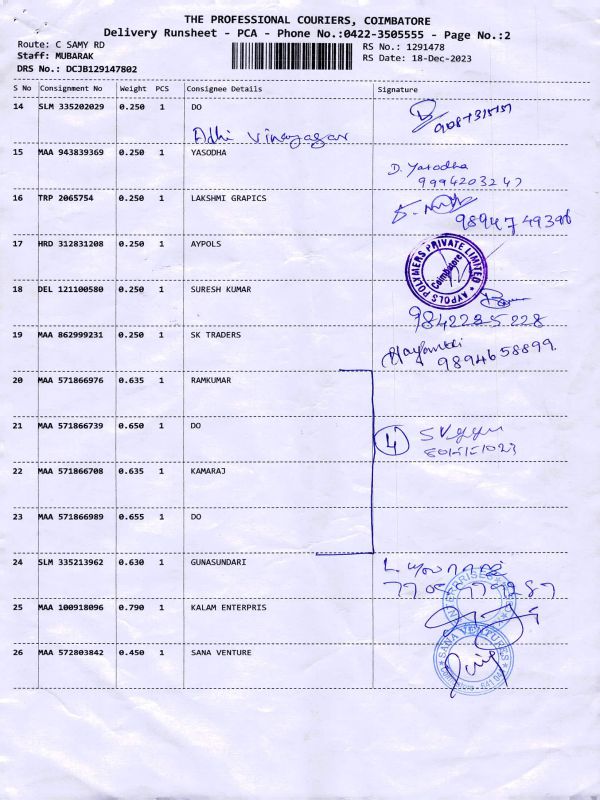 THE PROFESSIONAL COURIERS, COIMBATORE
Delivery Runsheet - PCA - Phone No.:0422-3505555 - Page No.:2
Route: C SAMY RD RS No.: 1291478
Staff: MUBARAK RS Date: 18-Dec-2023
DRS No.: DCJB129147802
S No Consignment No Weight PCS Consignee Details Signature
14 SLM 335202029 0.250 1 DO
Adhi Vinayagar
15 MAA 943839369 0.250 1 YASODHA
D. Yasodha
9994203247
16 TRP 2065754 0.250 1 LAKSHMI GRAPICS
17 HRD 312831208 0.250 1 AYPOLS
AYPOLS POLYMERS PRIVATE LIMITED
Coimbatore
18 DEL 121100580 0.250 1 SURESH KUMAR
9842235228
19 MAA 862999231 0.250 1 SK TRADERS
9894658899.
20 MAA 571866976 0.635 1 RAMKUMAR
21 MAA 571866739 0.650 1 DO
4
22 MAA 571866708 0.635 1 KAMARAJ
23 MAA 571866989 0.655 1 DO
24 SLM 335213962 0.630 1 GUNASUNDARI
25 MAA 100918096 0.790 1 KALAM ENTERPRIS
26 MAA 572803842 0.450 1 SANA VENTURE
SANA VENTURES